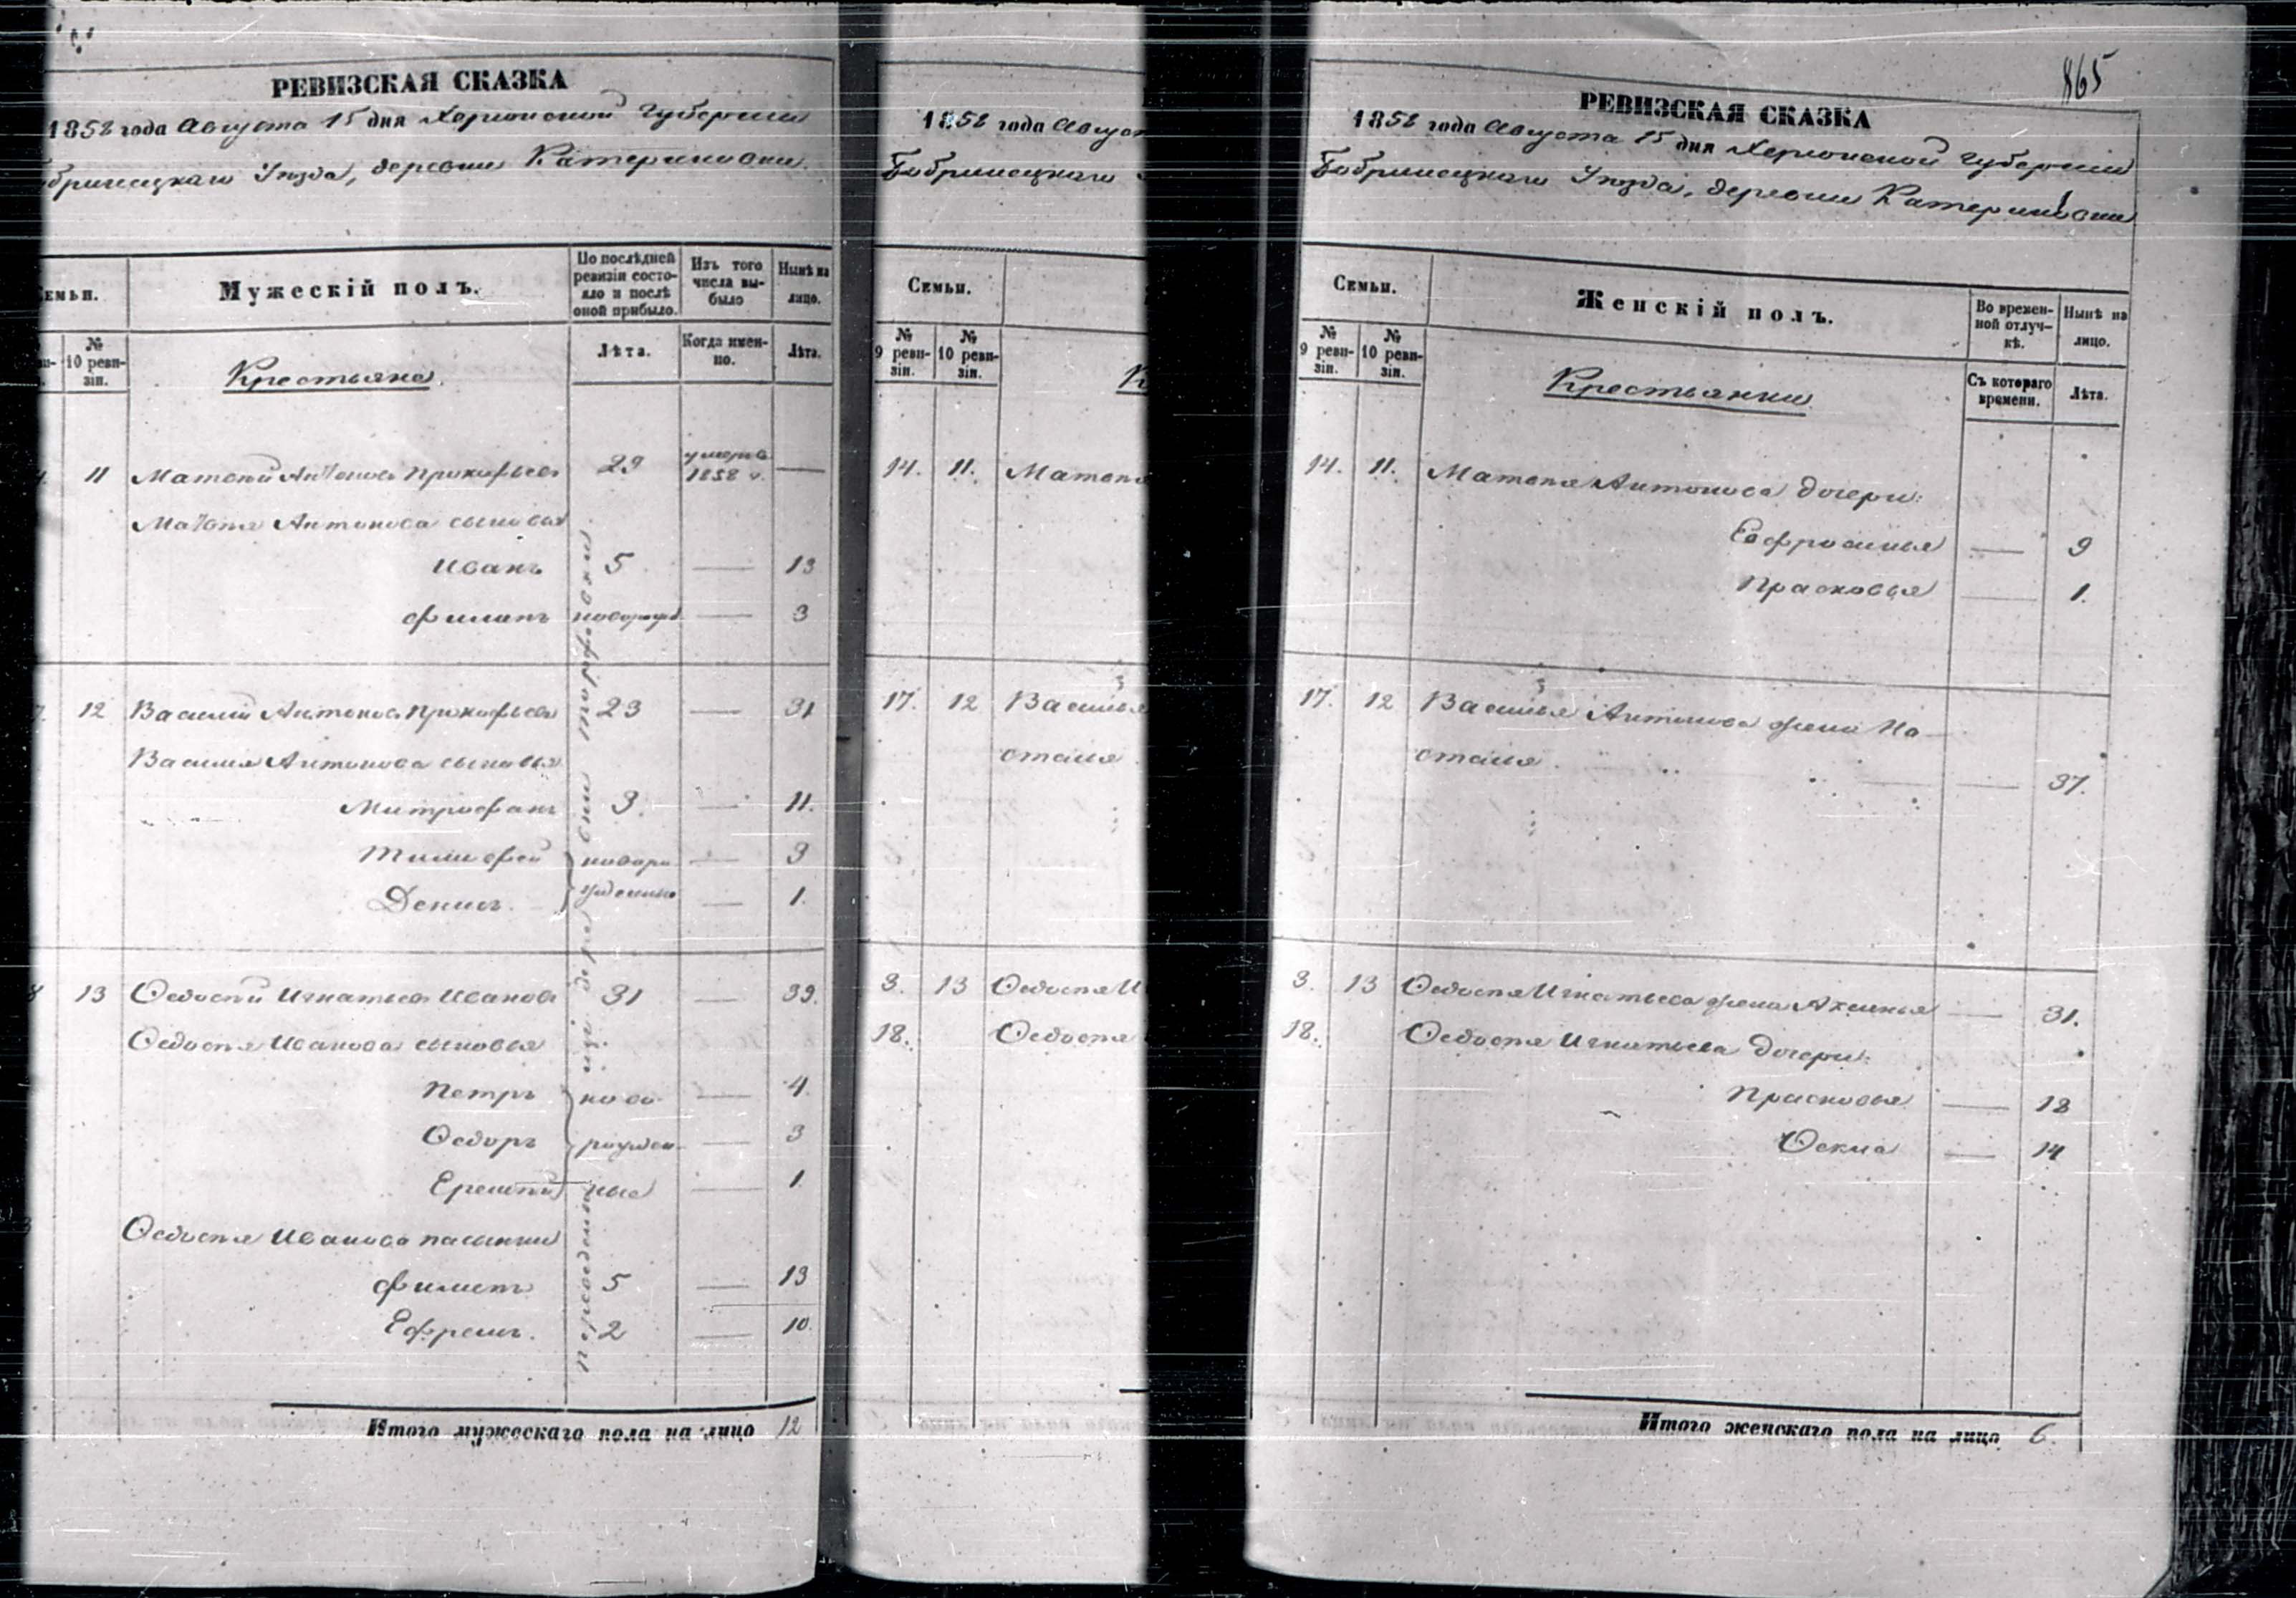 РЕВИЗСКАЯ СКАЗКА
1858 года Августа 15 дня Херсонской Губернии
бринецкаго Уѣзда, деревни Катериновки
емьи.
Мужескій полъ.
По послѣдней ревизіи состояло и послѣ оной прибыло.
Изъ того числа выбыло
Нынѣ на лицо.
№ 10 ревизіи.
Крестьяне
Лѣта.
Когда именно.
Лѣта.
11 Матвѣй Антоновъ Прокофьевъ 29 умеръ 1858 г. —
Матвѣя Антонова сыновья
Иванъ 5 — 13
Филипъ новорожд — 3
12 Василій Антоновъ Прокофьевъ 23 — 31
Василія Антонова сыновья
Митрофанъ 3. — 11.
Тимофей новоро — 3
Денисъ. жденные — 1.
13 Ѳедосѣй Игнатьевъ Ивановъ 31 — 39.
Ѳедосѣя Иванова сыновья
Петръ ново — 4.
Ѳедоръ рожден — 3
Еремѣй ные — 1.
Ѳедосѣя Иванова пасынки
Филипъ 5 — 13
Ефремъ. 2 — 10.
переведены изъ деревни
Итого мужескаго пола на лицо 12
1858 года Август
Бобринецкаго
Семьи.
№ 9 ревизіи.
№ 10 ревизіи.
К
14. 11. Матвѣя
17. 12 Василья
сталья
3. 13 Ѳедосѣя И
18. Ѳедосѣя
865
РЕВИЗСКАЯ СКАЗКА
1858 года Августа 15 дня Херсонской Губерніи
Бобринецкаго Уѣзда, деревни Катериновки
Семьи.
Женскій полъ.
Во временной отлучкѣ.
Нынѣ на лицо.
№ 9 ревизіи.
№ 10 ревизіи.
Крестьянки
Съ котораго времени.
Лѣта.
14. 11. Матвѣя Антонова дочери:
Евфросинья — 9
Прасковья — 1.
17. 12 Василья Антонова жена На
талья — 37.
3. 13 Ѳедосѣя Игнатьева жена Аксинья — 31.
18. Ѳедосѣя Игнатьева дочери:
Прасковья — 18
Ѳекла — 14
Итого женскаго пола на лицо 6.